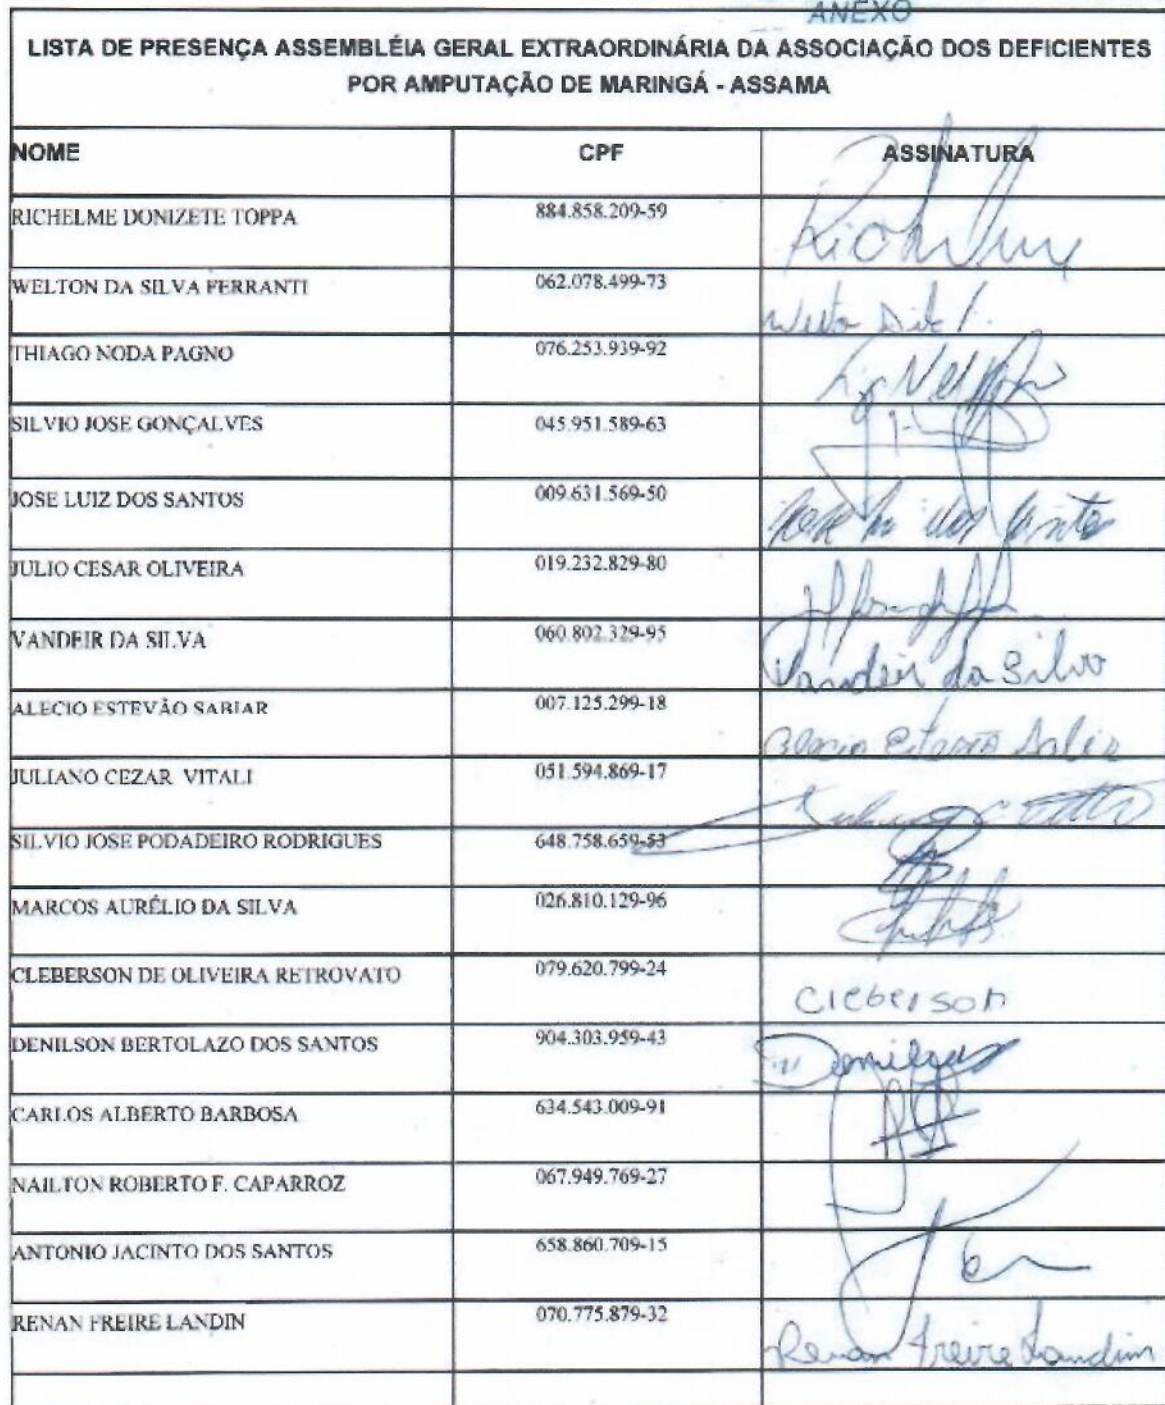 ANEXO
LISTA DE PRESENÇA ASSEMBLÉIA GERAL EXTRAORDINÁRIA DA ASSOCIAÇÃO DOS DEFICIENTES
POR AMPUTAÇÃO DE MARINGÁ - ASSAMA
NOME CPF ASSINATURA
RICHELME DONIZETE TOPPA 884.858.209-59
WELTON DA SILVA FERRANTI 062.078.499-73
THIAGO NODA PAGNO 076.253.939-92
SILVIO JOSE GONÇALVES 045.951.589-63
JOSE LUIZ DOS SANTOS 009.631.569-50
JULIO CESAR OLIVEIRA 019.232.829-80
VANDEIR DA SILVA 060.802.329-95 Vandeir da Silva
ALECIO ESTEVÃO SABIAR 007.125.299-18
JULIANO CEZAR VITALI 051.594.869-17
SILVIO JOSE PODADEIRO RODRIGUES 648.758.659-53
MARCOS AURÉLIO DA SILVA 026.810.129-96
CLEBERSON DE OLIVEIRA RETROVATO 079.620.799-24 Cleberson
DENILSON BERTOLAZO DOS SANTOS 904.303.959-43 Denilson
CARLOS ALBERTO BARBOSA 634.543.009-91
NAILTON ROBERTO F. CAPARROZ 067.949.769-27
ANTONIO JACINTO DOS SANTOS 658.860.709-15
RENAN FREIRE LANDIN 070.775.879-32 Renan Freire Landim